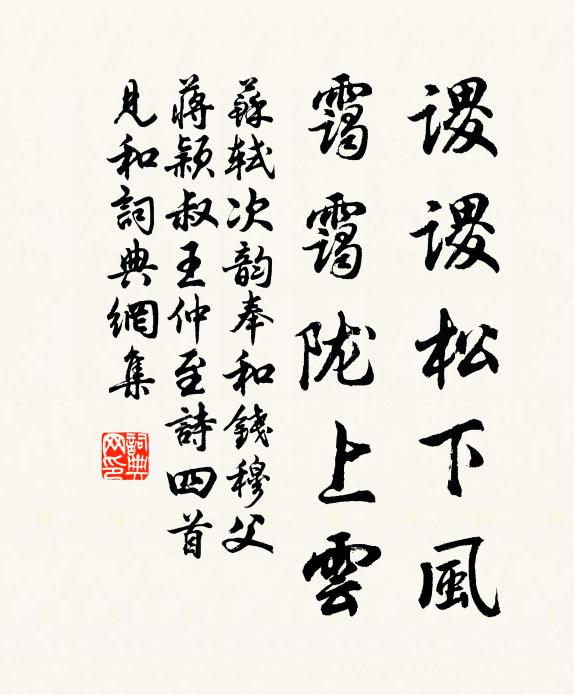 谡谡松下風
靄靄陇上雲
蘇轼次韵奉和錢穆父
蔣穎叔王仲至詩四首
見和詞典網集
詞典
网印